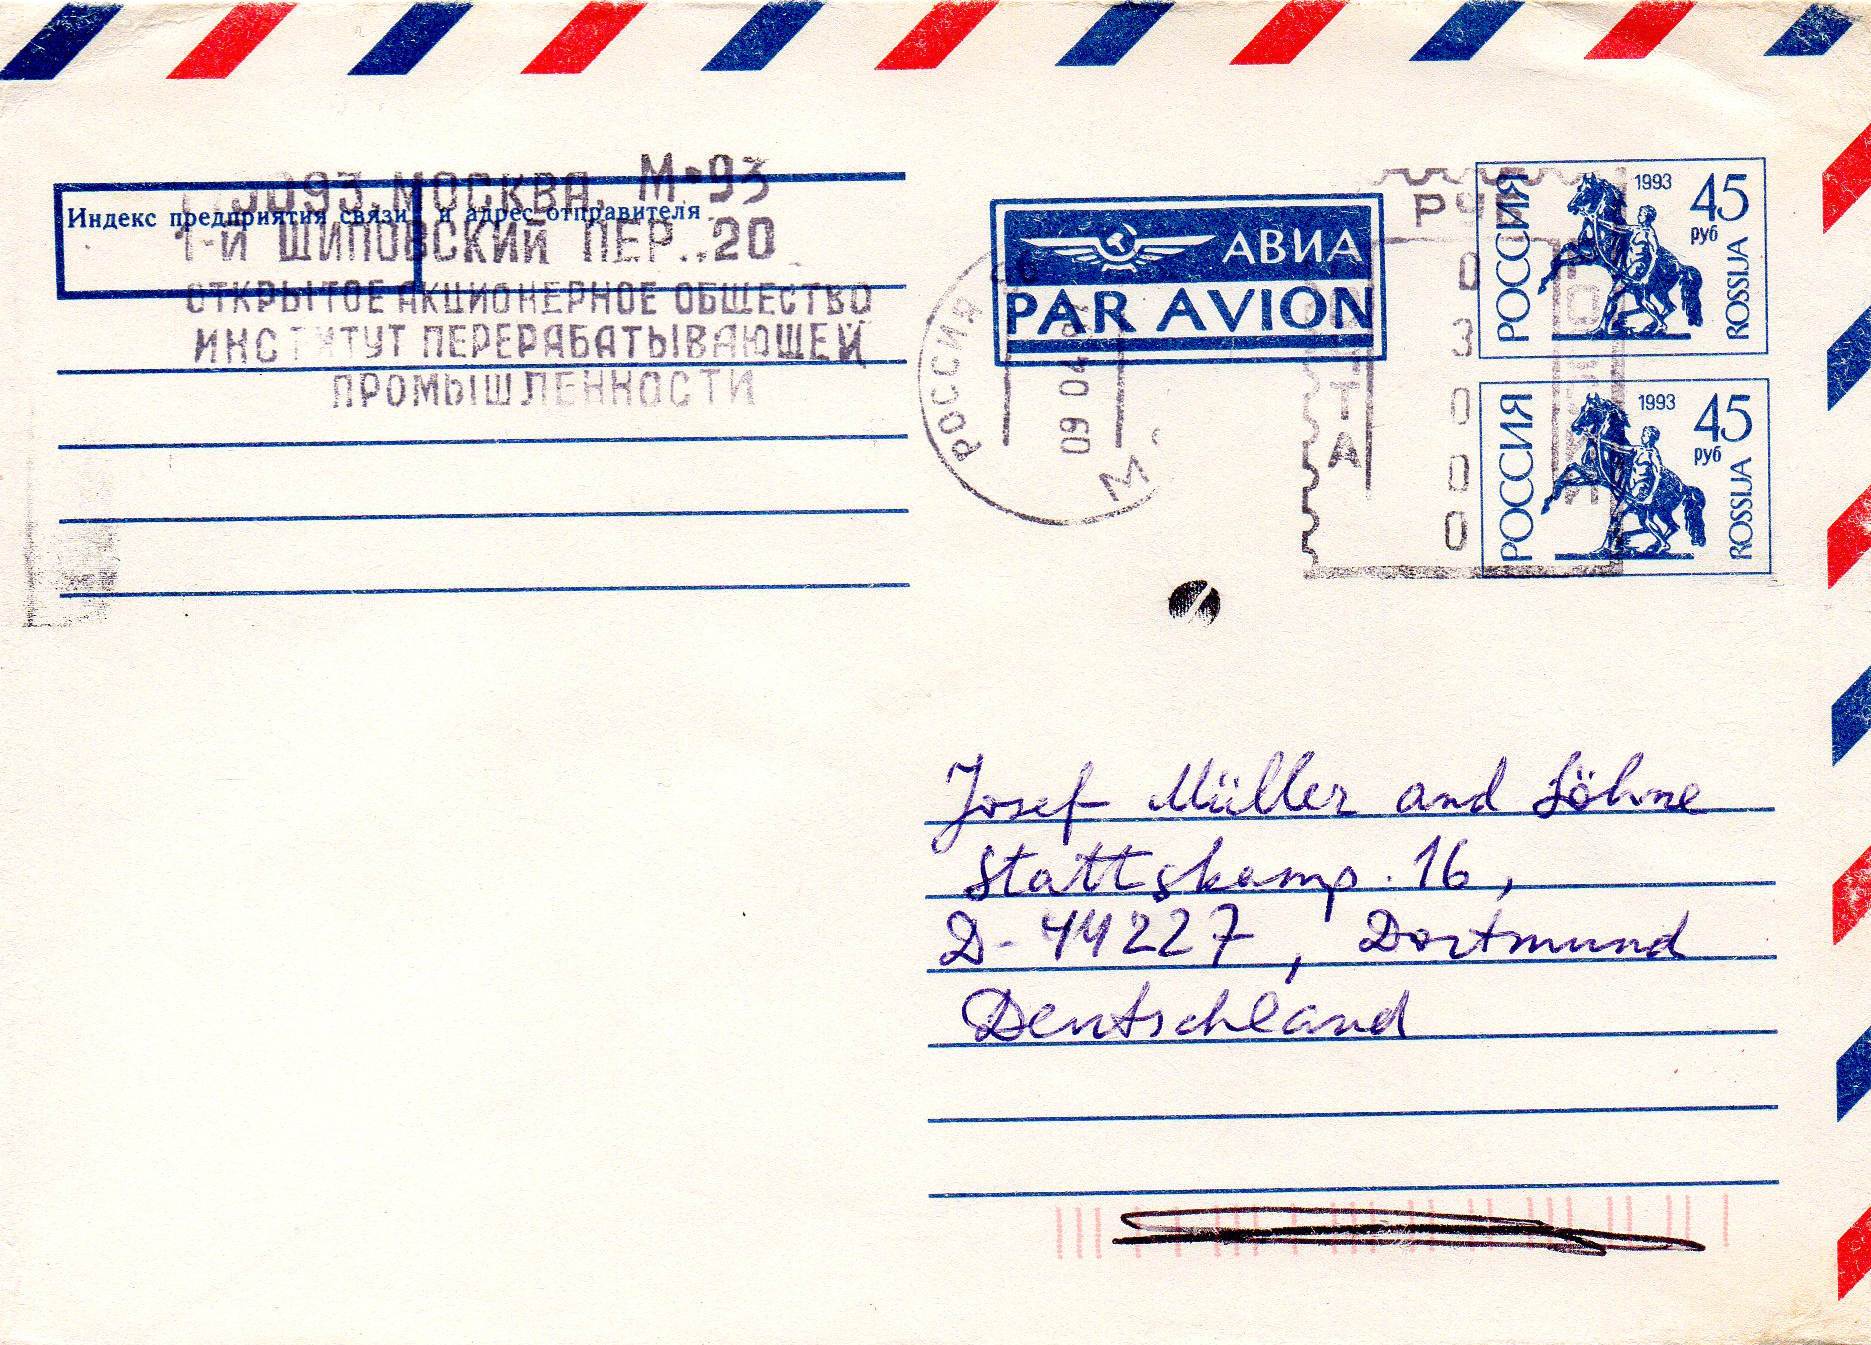 113093, МОСКВА, М-93
Индекс предприятия связи и адрес отправителя
1-й ЩИПОВСКИЙ ПЕР., 20
ОТКРЫТОЕ АКЦИОНЕРНОЕ ОБЩЕСТВО
ИНСТИТУТ ПЕРЕРАБАТЫВАЮЩЕЙ
ПРОМЫШЛЕННОСТИ
РОССИЯ
09 04
М
АВИА
PAR AVION
ПОЧТА
03000
РОССИЯ
1993
45
руб
ROSSIJA
РОССИЯ
1993
45
руб
ROSSIJA
Josef Müller and Söhne
Stattskamp. 16,
D-44227, Dortmund
Deutschland